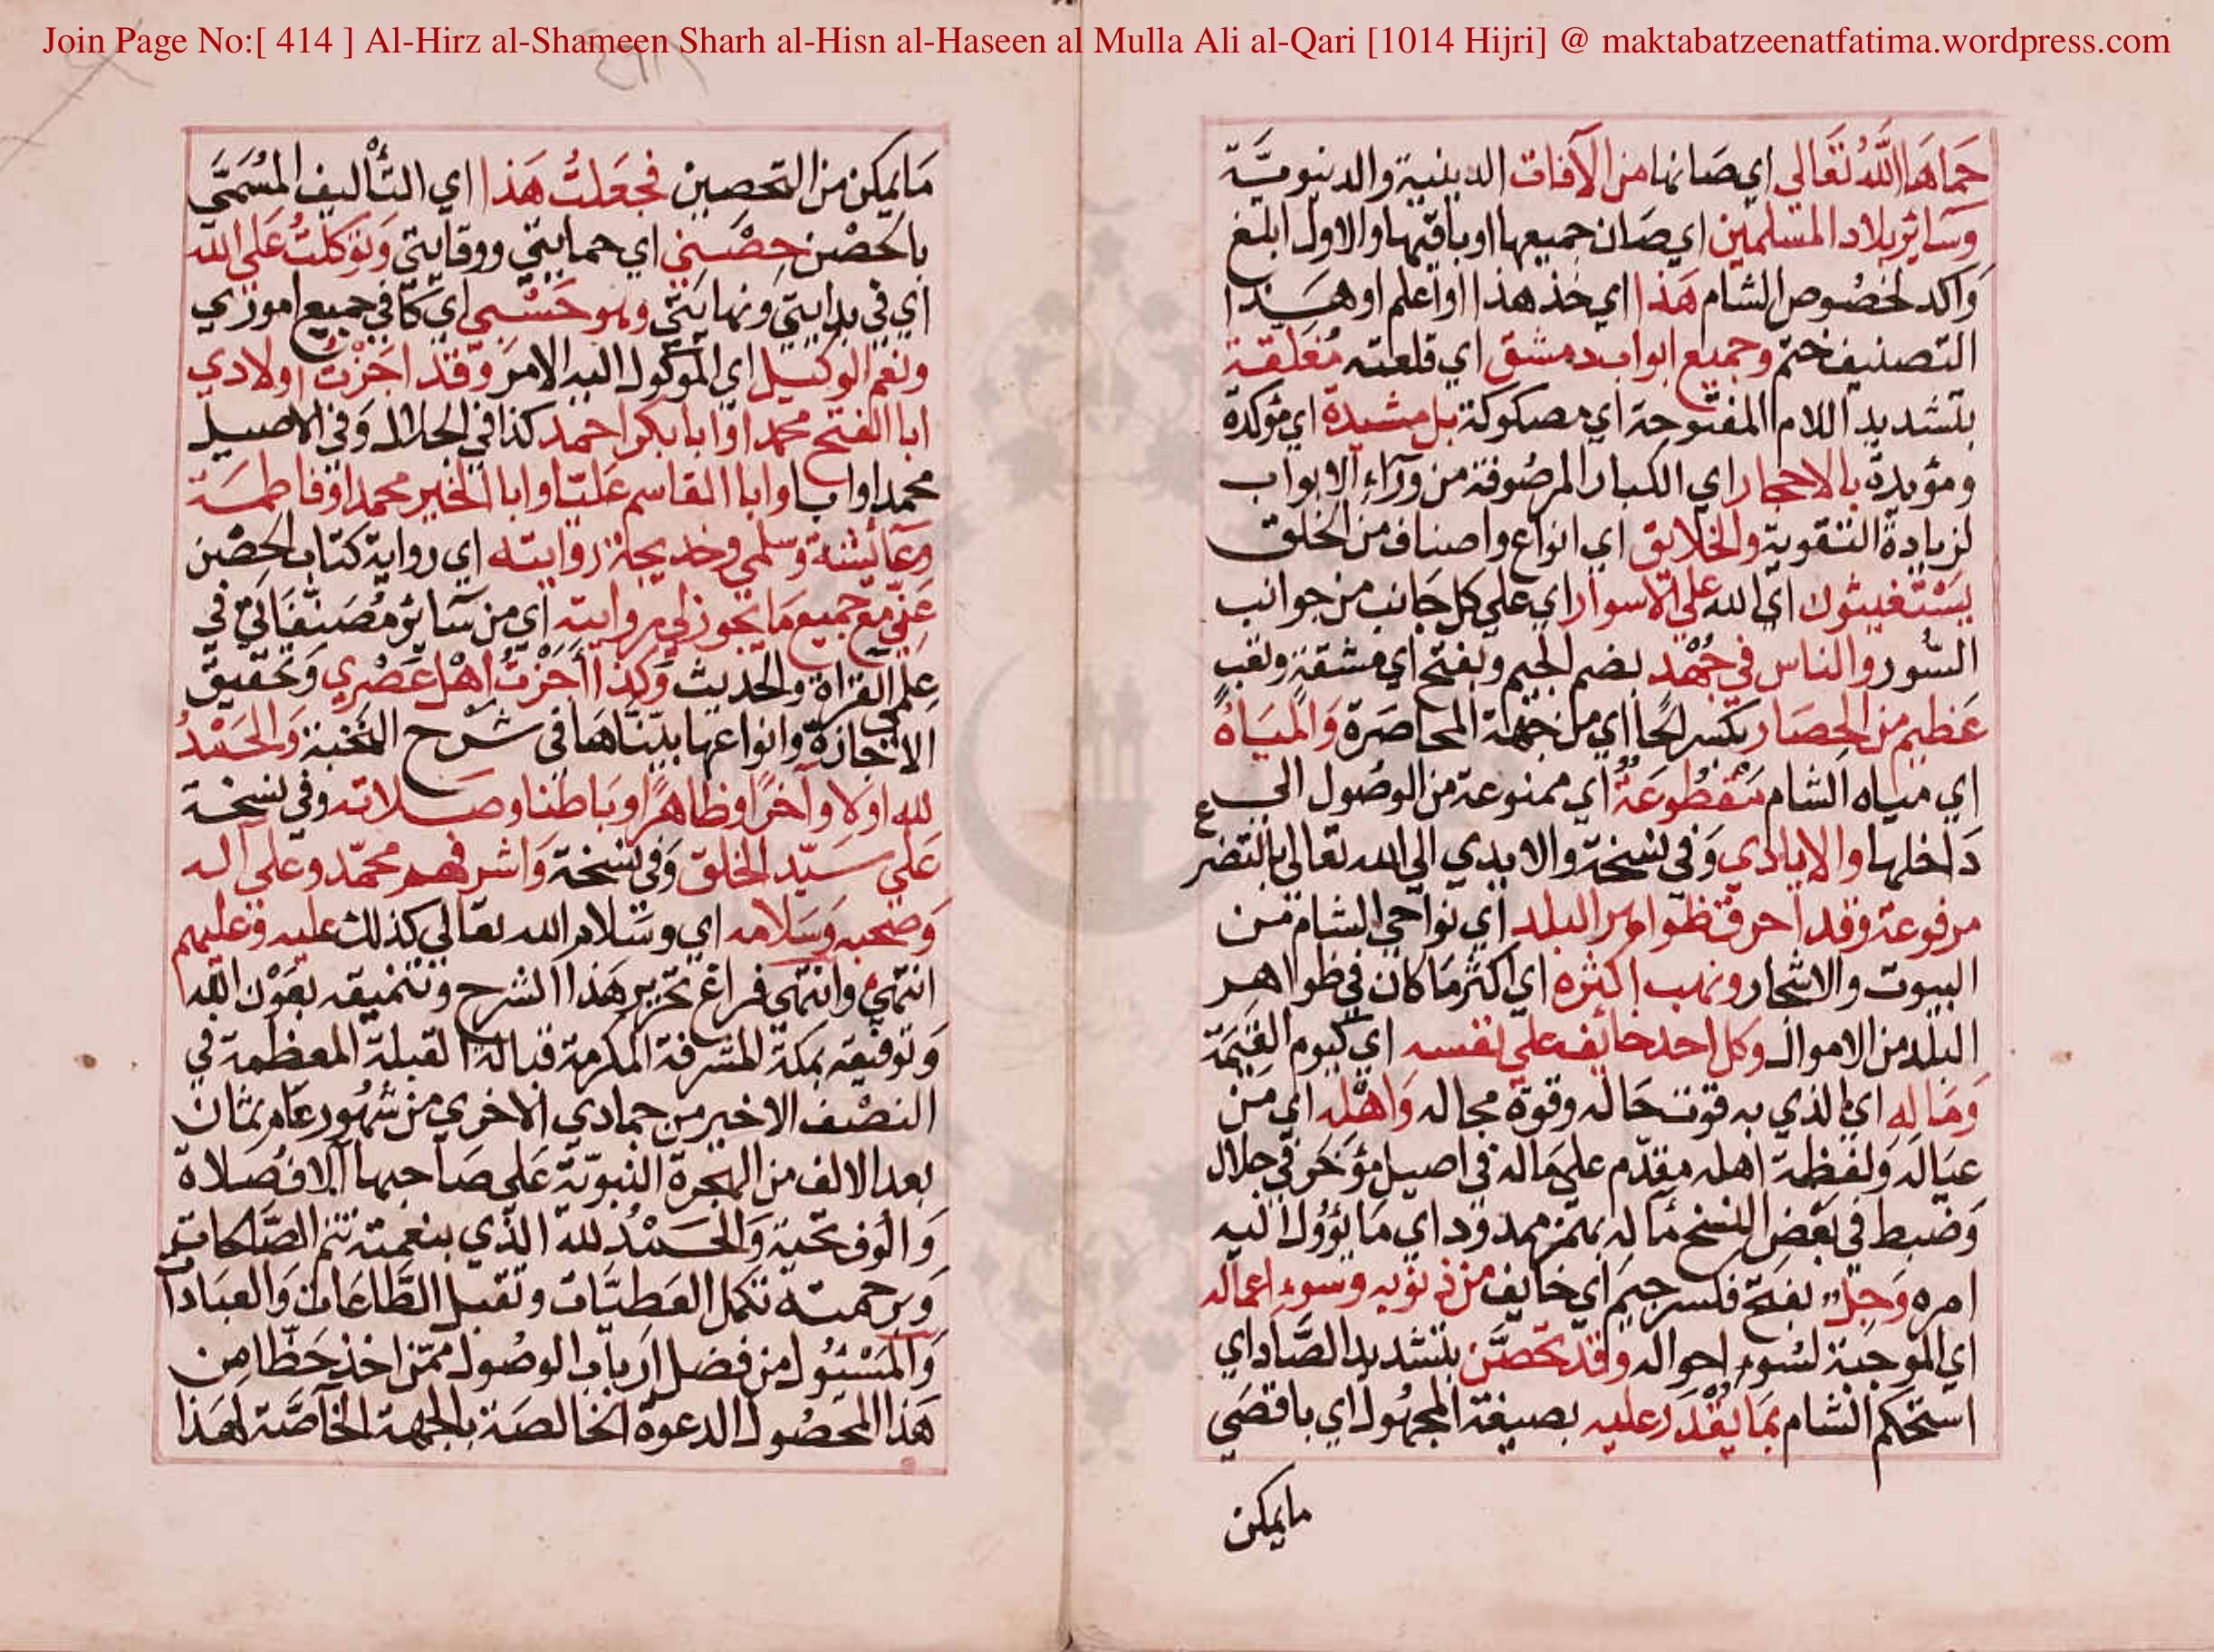 Join Page No:[ 414 ] Al-Hirz al-Shameen Sharh al-Hisn al-Haseen al Mulla Ali al-Qari [1014 Hijri] @ maktabatzeenatfatima.wordpress.com
حَمَاهَا اللَّهُ تَعَالى اي صَانها من الآفات الدينية والدنيويَّة
وَسَائر بلاد المسلمين اي صَان جميعها او باقيها والاول ابلغ
وَاكد لخصُوص الشام هَذا اي خذ هذا او اعلم او هَذا
التصنيف ختم وجميع ابواب دمشق اي قلعته مُغَلقة
بتشديد اللام المفتوحة اي مصكوكة بل مشيدة اي مؤكدة
ومؤيدة بالاحجار اي الكبار المرصُوفة من ورآء الابواب
لزيادة التقوية والخلائق اي انواع واصناف من الخلق
يستغيثون اي الله على الاسوار اي على كل جَانب من جوانب
السُّور والناس في جُهْد بضم الجيم وبفتح اي مشقة وتعب
عَظيم من الحِصَار بكسر الحا اي من جهة المحاصَرة وَالميَاهُ
اي مياه الشام مَقْطُوعَةٌ اي ممنوعة من الوصُول الي
دَاخلها والايادي وَفي نسخة والايدي الي الله تعالى بالتضرع
مرفوعة وقد احرقت ظواهر البلد اي نواحي الشام من
البيوت والاشجار ونهب اكثره اي اكثر مَا كان في ظواهر
البلد من الاموال وكل احد خائف على نفسه اي كيوم القيمَة
وَمَاله اي الذي به قوت حَاله وقوة مجاله وَاهْله اي من
عيَاله وَلفظة اهله مقدّم على مَاله في اصيل مؤخر في جلال
وَضبط في بَعْض النسخ مآله بهمز ممدود اي مَا يؤول اليه
امره وَجِل بفتح فكسر جيم اي خايف من ذنوبه وسوء اعماله
اي الموجبة لسُوء احواله وقد تحصَّن بتشديد الصَّاد اي
استحكم الشام بمَا يُقْدَر عليه بصيغة المجهُول اي باقصَي
مايمكن
مَا يمكن من التحصين فجَعَلتُ هَذا اي التأليف المُسَمَّى
بالحَصْن حِصْني اي حمايتي ووقايتي وَتَوكلتُ عَلى الله
اي في بدايتي وَنهايَتي وهو حَسْبي اي كافي جميع اموري
ونعم الوكيل اي الموكول اليه الامرَ وَقد اجَزْتُ اولادي
ابا الفتح محمدا وابا بكر احمد كذا في الجلال وَفي الاصيل
محمدا وابا وابا القاسم عَليّا وابا الخير محمدا وفاطمة
وعَائشة وسلمى وخديجة روايته اي رواية كتاب الحِصْن
عَنّي مع جميع مَا يجوز لي روايته اي من سَائر مُصَنّفاتي في
علمي القراة والحديث وَكذا اَجَزْتُ اهْل عَصْري وَتحقيق
الاجَازة وانواعها بيّنّاهَا في شَرْح النخبة وَالحَمْدُ
لله اولا وآخرًا وظاهرًا وبَاطنا وصَلاته وفي نسخة
عَلى سَيّد الخلق وَفي نسخة وَاشرفهم محمّد وعلى آله
وَصحبه وَسَلامه اي وسَلام الله تعالى كذلك عليه وعليهم
انتهي وانتهي فراغ تحرير هَذا الشرح وتنميقه بعَوْن الله
وَتوفيقه بمكة المشرفة المكرمة قبالة القبلة المعظمة في
النصْف الاخير من جمادي الاخري من شهُور عَام ثمان
بعد الالف من الهجرة النبوّية عَلى صَاحبها آلاف صَلاة
وَالوف تحية وَالحَمْدُ لله الذي بنعمته تتم الصَّالحات
وَبرحمته تكمل العَطيَّات وتقبل الطَّاعَات وَالعبَادات
وَالمسْئُول من فضل اربَاب الوصُول ممّن اخذ حَظّا من
هَذا المحصُول الدعوة الخالصَة بالجهة الخَآصَّة لهَذا